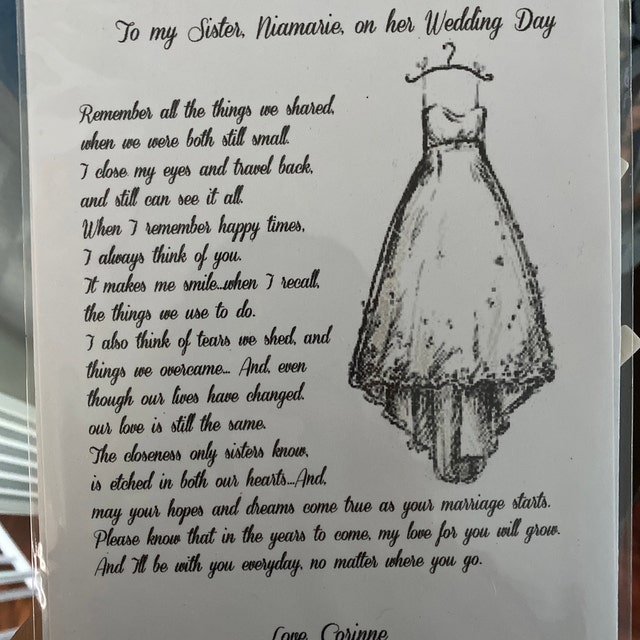 To my Sister, Niamarie, on her Wedding Day
Remember all the things we shared,
when we were both still small.
I close my eyes and travel back,
and still can see it all.
When I remember happy times,
I always think of you.
It makes me smile...when I recall,
the things we use to do.
I also think of tears we shed, and
things we overcame... And, even
though our lives have changed,
our love is still the same.
The closeness only sisters know,
is etched in both our hearts...And,
may your hopes and dreams come true as your marriage starts.
Please know that in the years to come, my love for you will grow.
And I'll be with you everyday, no matter where you go.
Love, Corinne